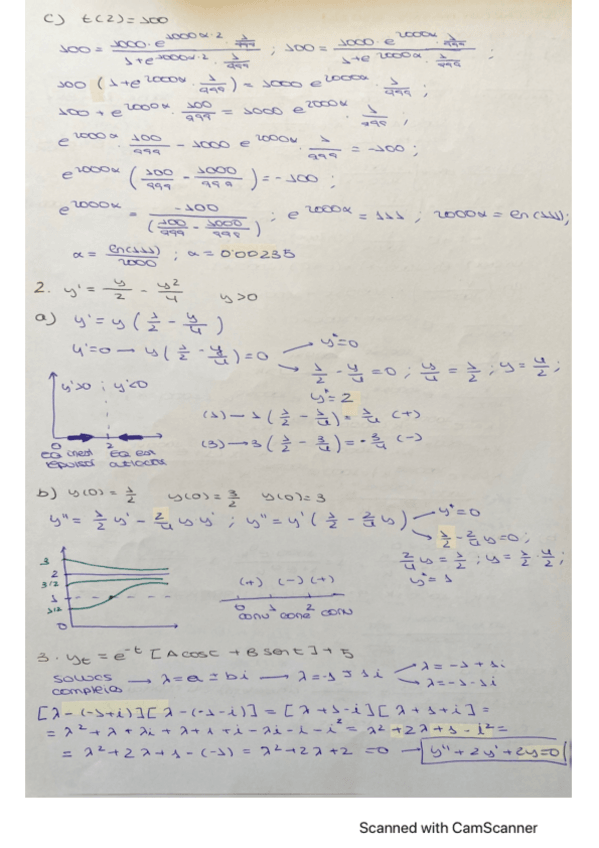 c) t(2)=100
100 = 1000·e^{1000α·2}·1/999 / 1+e^{1000α·2}·1/999 ; 100 = 1000·e^{2000α}·1/999 / 1+e^{2000α}·1/999 ;
100 (1+e^{2000α}·1/999) = 1000 e^{2000α}·1/999 ;
100 + e^{2000α}·100/999 = 1000 e^{2000α}·1/999 ;
e^{2000α}·100/999 - 1000 e^{2000α}·1/999 = -100 ;
e^{2000α} (100/999 - 1000/999) = -100 ;
e^{2000α} = -100 / (100/999 - 1000/999) ; e^{2000α} = 111 ; 2000α = ln(111) ;
α = ln(111)/2000 ; α = 0'00235
2. y' = y/2 - y²/4 y>0
a) y' = y (1/2 - y/4)
y'=0 → y (1/2 - y/4) = 0 → y*=0
→ 1/2 - y/4 = 0 ; y/4 = 1/2 ; y = 4/2 ;
y*=2
y'>0 ; y'<0
(1) → 1 (1/2 - 1/4) = 1/4 (+)
(3) → 3 (1/2 - 3/4) = -3/4 (-)
0 2
EQ inest EQ est
repulsor atractor
b) y(0) = 1/2 y(0) = 3/2 y(0) = 3
y'' = 1/2 y' - 2/4 y y' ; y'' = y' (1/2 - 2/4 y) → y*=0
→ 1/2 - 2/4 y = 0 ;
2/4 y = 1/2 ; y = 1/2 · 4/2 ;
y* = 1
3
2
3/2
1
1/2
0
(+) (-) (+)
0 1 2
conv conc conv
3. y_t = e^{-t} [A cos t + B sen t] + 5
solucs complejas → λ = a ± bi → λ = -1 ± 1i → λ = -1 + 1i
→ λ = -1 - 1i
[λ - (-1+i)] [λ - (-1-i)] = [λ + 1 - i] [λ + 1 + i] =
= λ² + λ + λi + λ + 1 + i - λi - i - i² = λ² + 2λ + 1 - i² =
= λ² + 2λ + 1 - (-1) = λ² + 2λ + 2 = 0 → y'' + 2y' + 2y = 0
Scanned with CamScanner